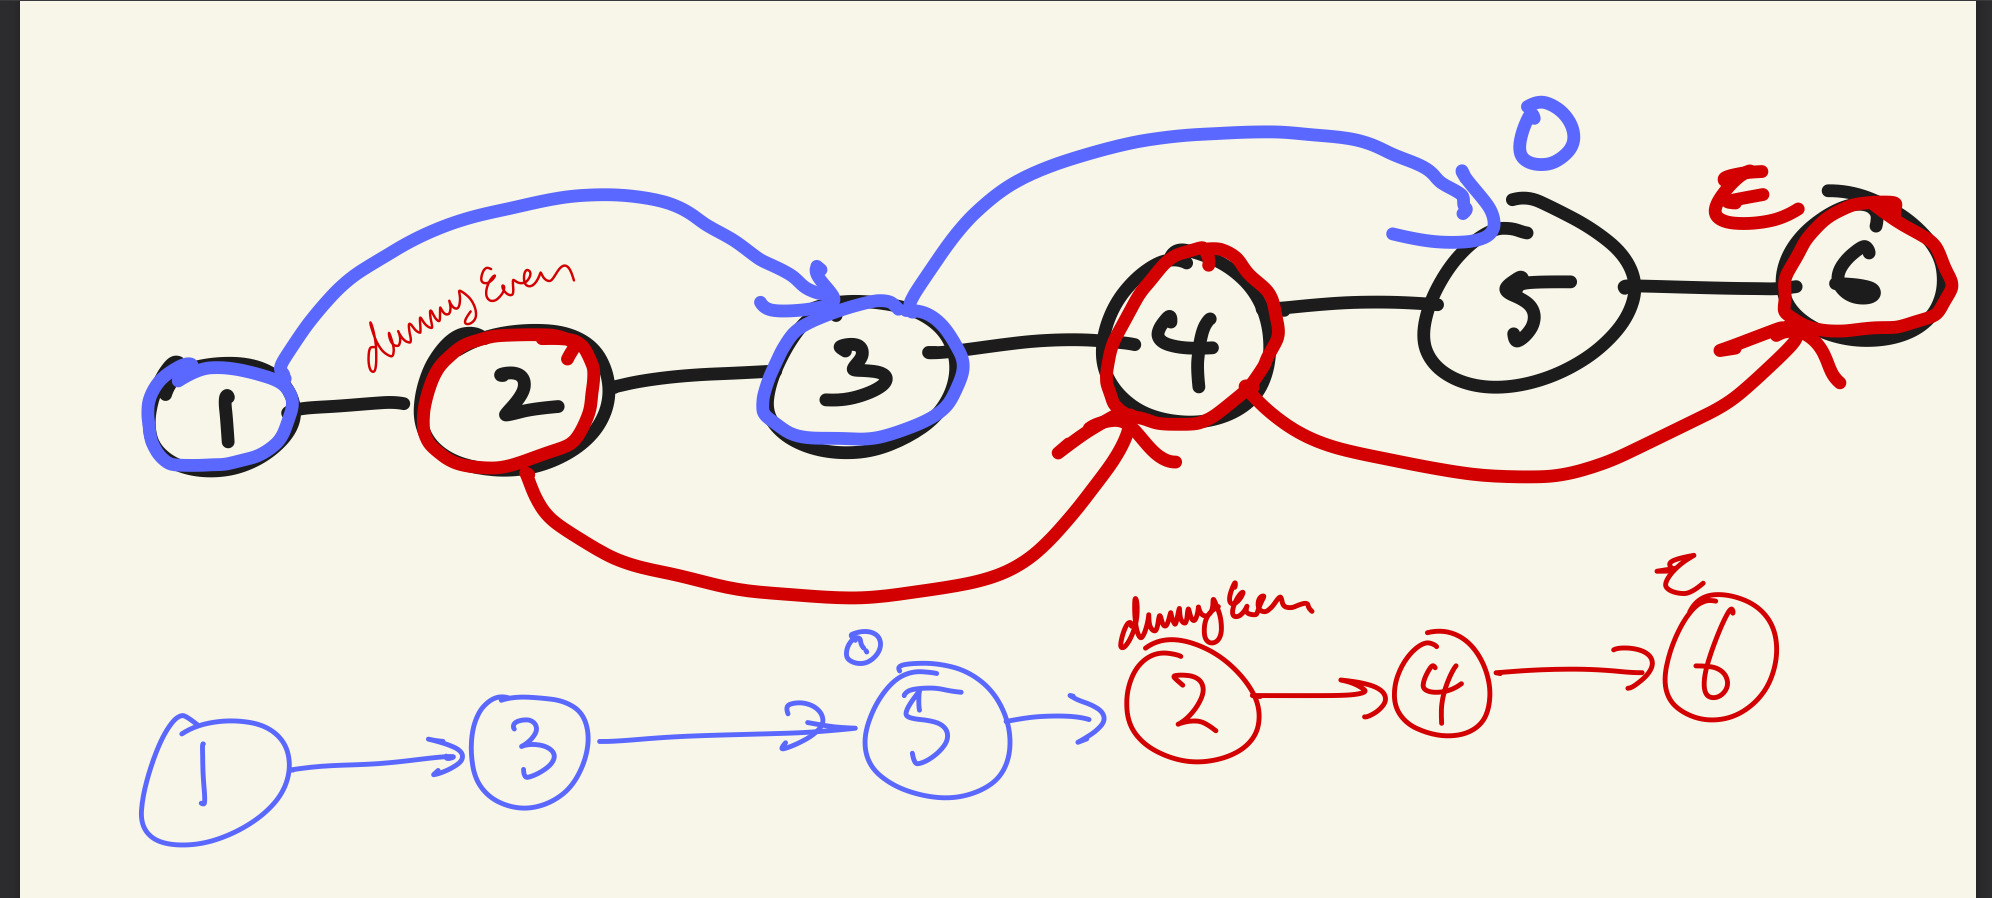 O
E
dummy Even
1 2 3 4 5 6
O
dummy Even
E
1 3 5 2 4 6